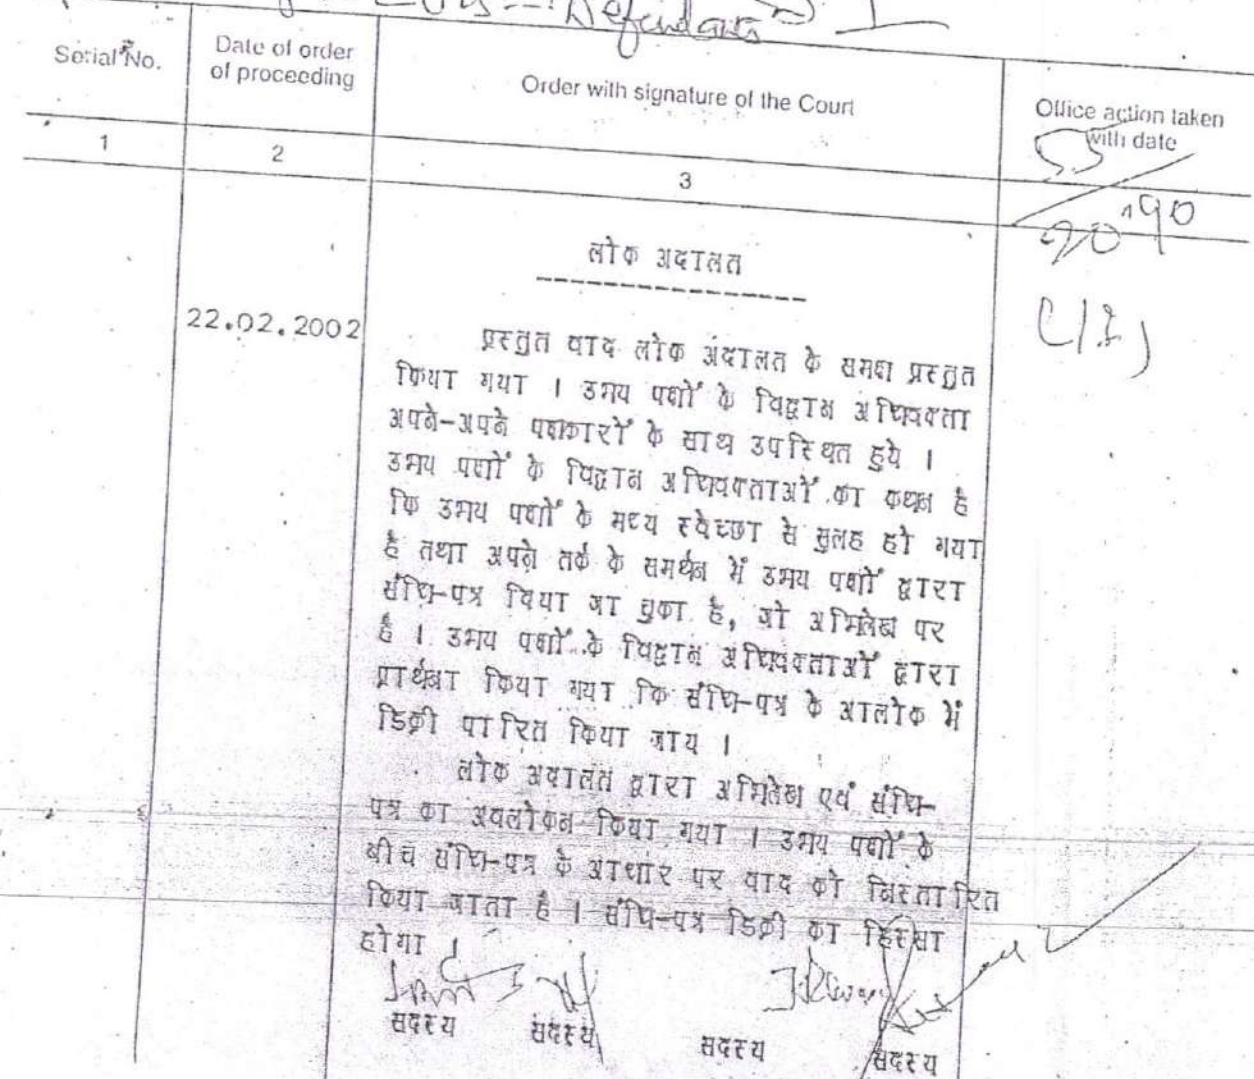 Defendants
Serial No.
Date of order
of proceeding
Order with signature of the Court
Office action taken
with date
1
2
3
लोक अदालत
22.02.2002
प्रस्तुत वाद लोक अदालत के समक्ष प्रस्तुत
किया गया । उभय पक्षों के विद्वान अधिवक्ता
अपने-अपने पक्षकारों के साथ उपस्थित हुये ।
उभय पक्षों के विद्वान अधिवक्ताओं का कथन है
कि उभय पक्षों के मध्य स्वेच्छा से सुलह हो गया
है तथा अपने तर्क के समर्थन में उभय पक्षों द्वारा
संधि-पत्र दिया जा चुका है, जो अभिलेख पर
है । उभय पक्षों के विद्वान अधिवक्ताओं द्वारा
प्रार्थना किया गया कि संधि-पत्र के आलोक में
डिक्री पारित किया जाय ।
लोक अदालत द्वारा अभिलेख एवं संधि-
पत्र का अवलोकन किया गया । उभय पक्षों के
बीच संधि-पत्र के आधार पर वाद को निस्तारित
किया जाता है । संधि-पत्र डिक्री का हिस्सा
होगा ।
सदस्य सदस्य सदस्य सदस्य